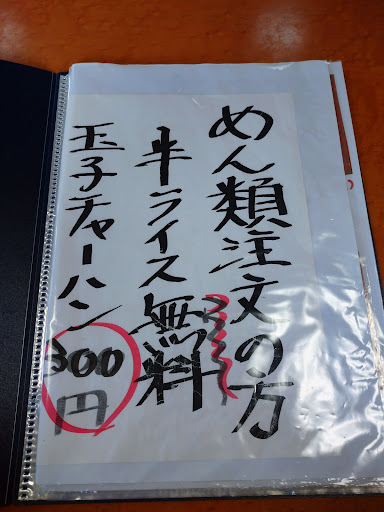 めん類注文の方
半ライス無料
玉子チャーハン300円